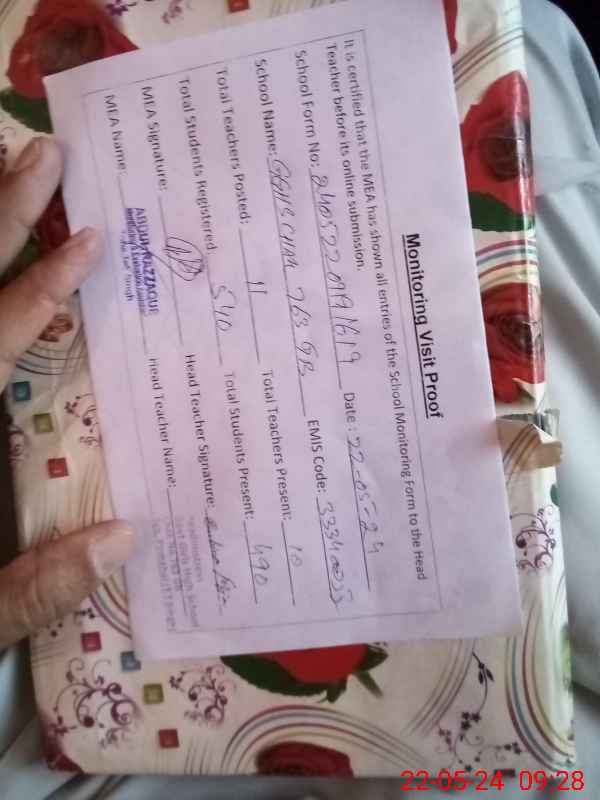 Monitoring Visit Proof
It is certified that the MEA has shown all entries of the School Monitoring Form to the Head
Teacher before its online submission.
School Form No: Date: 22-05-24
School Name: GGHS Chak 763 GB EMIS Code:
Total Teachers Posted: 11 Total Teachers Present: 10
Total Students Registered 540 Total Students Present: 490
MEA Signature: Head Teacher Signature:
MEA Name: ABDUL RAZZAQUE Head Teacher Name:
Toba Tek Singh
Headmistress
Govt Girls High School
22-05-24 09:28